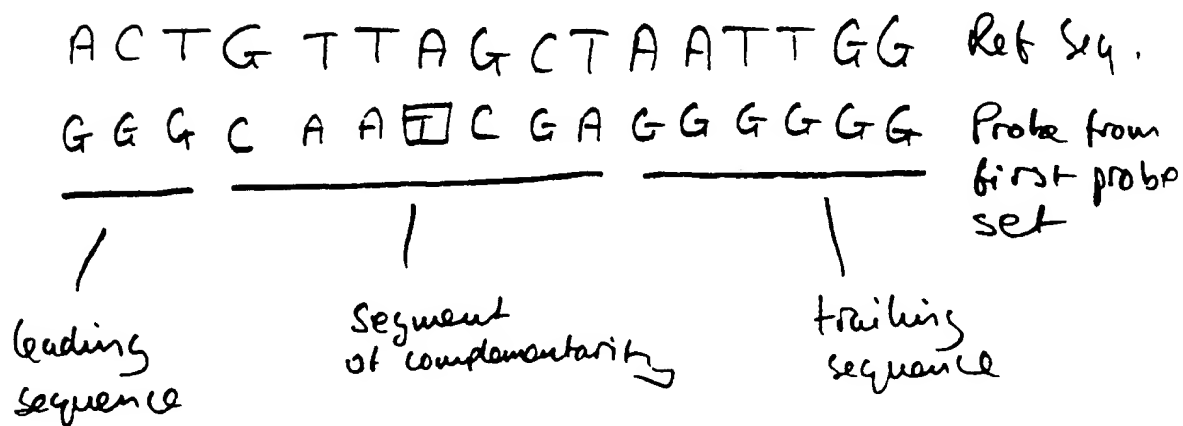 ACTGTTAGCTAATTGG Ref Seq.
GGGCAATCGAGGGGGG Probe from
first probe
set
leading
sequence
segment
of complementarity
trailing
sequence